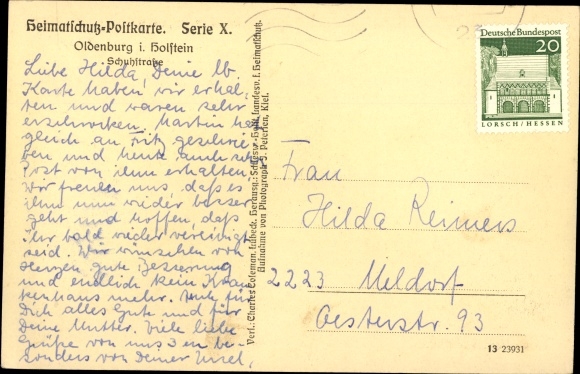 Heimatschutz-Postkarte. Serie X.
Oldenburg i. Holstein
Schuhstraße
Liebe Hilda, Deine lb.
Karte haben wir erhal-
ten und waren sehr
erschrocken. Martin hat
gleich an Fritz geschrie-
ben und heute auch
Post von ihm erhalten.
Wir freuen uns, daß es
ihm nun wieder besser
geht und hoffen, daß
Ihr bald wieder vereinigt
seid. Wir wünschen von
Herzen gute Besserung
und endlich kein Kran-
kenhaus mehr. für
Dich alles Gute und für
Deine Mutter. Viele liebe
Grüße von uns 3 en be-
sonders von Deiner Ursel,
Verl.: Charles Coleman, Lübeck. Herausg.: Schlesw.-Holst. Landesv. f. Heimatschutz.
Aufnahme von Photograph J. Petersen, Kiel.
Deutsche Bundespost
20
LORSCH/HESSEN
Frau
Hilda Reimers
2223 Meldorf
Oesterstr. 93
13 23931